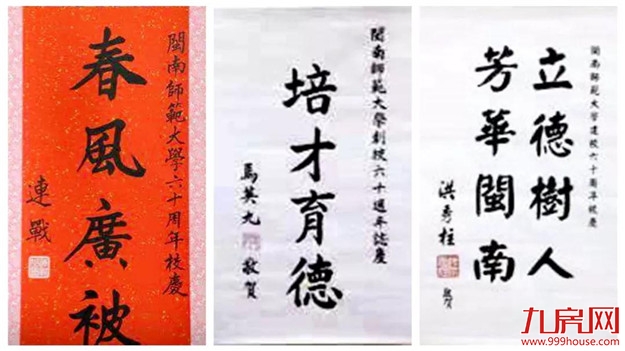 閩南師範大學六十周年校慶
春風廣被
連戰
閩南師範大學創校六十週年誌慶
培才育德
馬英九
敬賀
閩南師範大學建校六十周年校慶
立德樹人
芳華閩南
洪秀柱
敬賀
九房网
www.999house.com